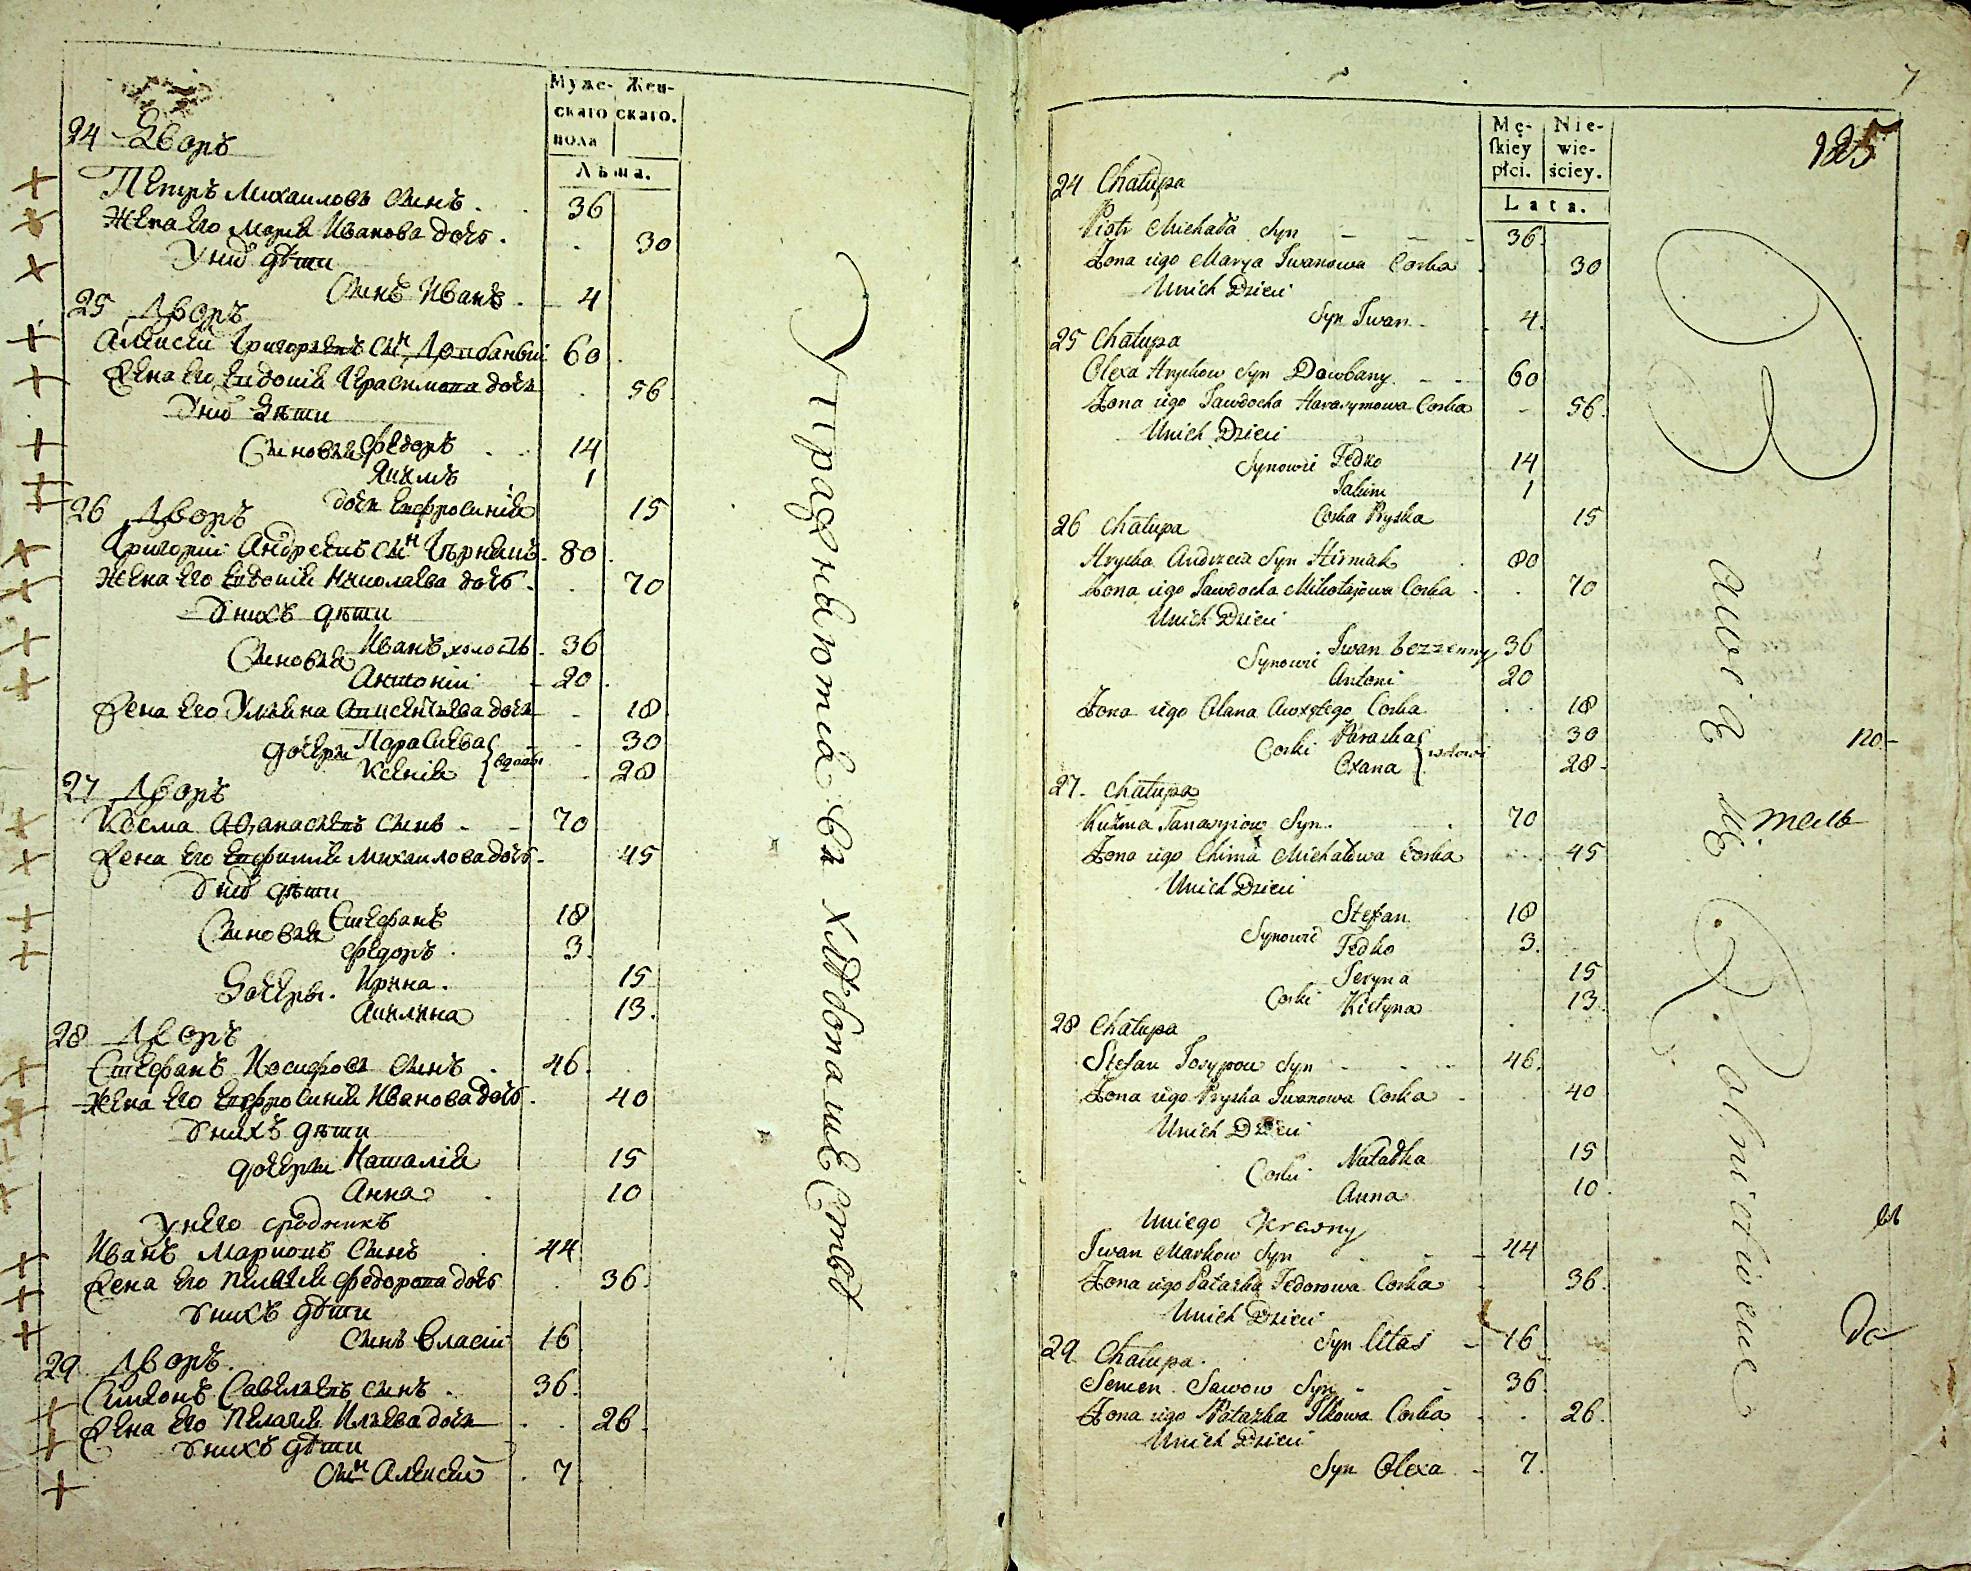 Муже- Жен-
скаго скаго.
пола
Лѣта.
24 Дворъ
Петръ Михаиловъ сынъ 36
Жена Его Марія Иванова дочь 30
У них дѣти
Сынъ Иванъ 4
25 Дворъ
Алексей Григориевъ сын 60
Жена Его Евдокія Герасимова дочь 56
У них дѣти
Синовья Федоръ 14
Якимъ 1
дочь Евфросинія 15
26 Дворъ
Григорій Андреевъ сын 80
Жена Его Евдокія Николаева дочь 70
У нихъ дѣти
Синовья Иванъ холостъ 36
Антоній 20
Жена Его Ульяна дочь 18
дочери Парасцева 30
Ксенія вдовы 28
27 Дворъ
Косма Афанасиевъ сынъ 70
Жена Его Евфимія Михаилова дочь 45
У них дѣти
Синовья Стефанъ 18
Федоръ 3
Дочери Ирина 15
Акилина 13
28 Дворъ
Стефанъ Иосифовъ сынъ 46
Жена Его Евфросинія Иванова дочь 40
У нихъ дѣти
дочери Наталія 15
Анна 10
У него сродникъ
Иванъ Марковъ сынъ 44
Жена Его Пелагія Федорова дочь 36
У нихъ дѣти
сынъ Власій 16
29 Дворъ
Симеонъ Савельевъ сынъ 36
Жена Его Пелагія Ильева дочь 26
У нихъ дѣти
сын Алексей 7
Упражняются въ хлѣбопашествѣ
7
125
Mę- Nie-
skiey wie-
płci. ściey.
Lata.
24 Chałupa
Piotr Michała Syn 36
Żona iego Marya Iwanowa Corka 30
U nich Dzieci
Syn Iwan 4
25 Chałupa
Olexa Hryćkow Syn Dowbany 60
Żona iego Jawdocha Harasymowa Corka 56
U nich Dzieci
Synowie Fedko 14
Jakim 1
Corka Pryska 15
26 Chałupa
Hrycko Andrzeia Syn Hirniak 80
Żona iego Jawdocha Mikołajowa Corka 70
U nich Dzieci
Synowie Iwan bezzenny 36
Antoni 20
Żona iego Ulana Corka 18
Corki Paraska 30
Oxana wdowi 28
27 Chałupa
Kuźma Panasyiow Syn 70
Żona iego Chima Michałowa Corka 45
U nich Dzieci
Synowie Stefan 18
Fedko 3
Corki Jeryna 15
Kiełyna 13
28 Chałupa
Stefan Josypow Syn 46
Żona iego Pryska Iwanowa Corka 40
U nich Dzieci
Corki Natałka 15
Anna 10
U niego Krewny
Iwan Markow Syn 44
Żona iego Pałazka Fedorowa Corka 36
U nich Dzieci
Syn Ułas 16
29 Chałupa
Semen Sawow Syn 36
Żona iego Pałazka Ilkowa Corka 26
U nich Dzieci
Syn Olexa 7
Bawią się Rolnictwem
по-
тель
въ